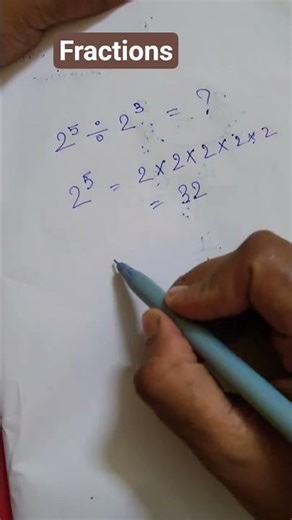 Fractions
2⁵ ÷ 2³ = ?
2⁵ = 2 × 2 × 2 × 2 × 2
= 32